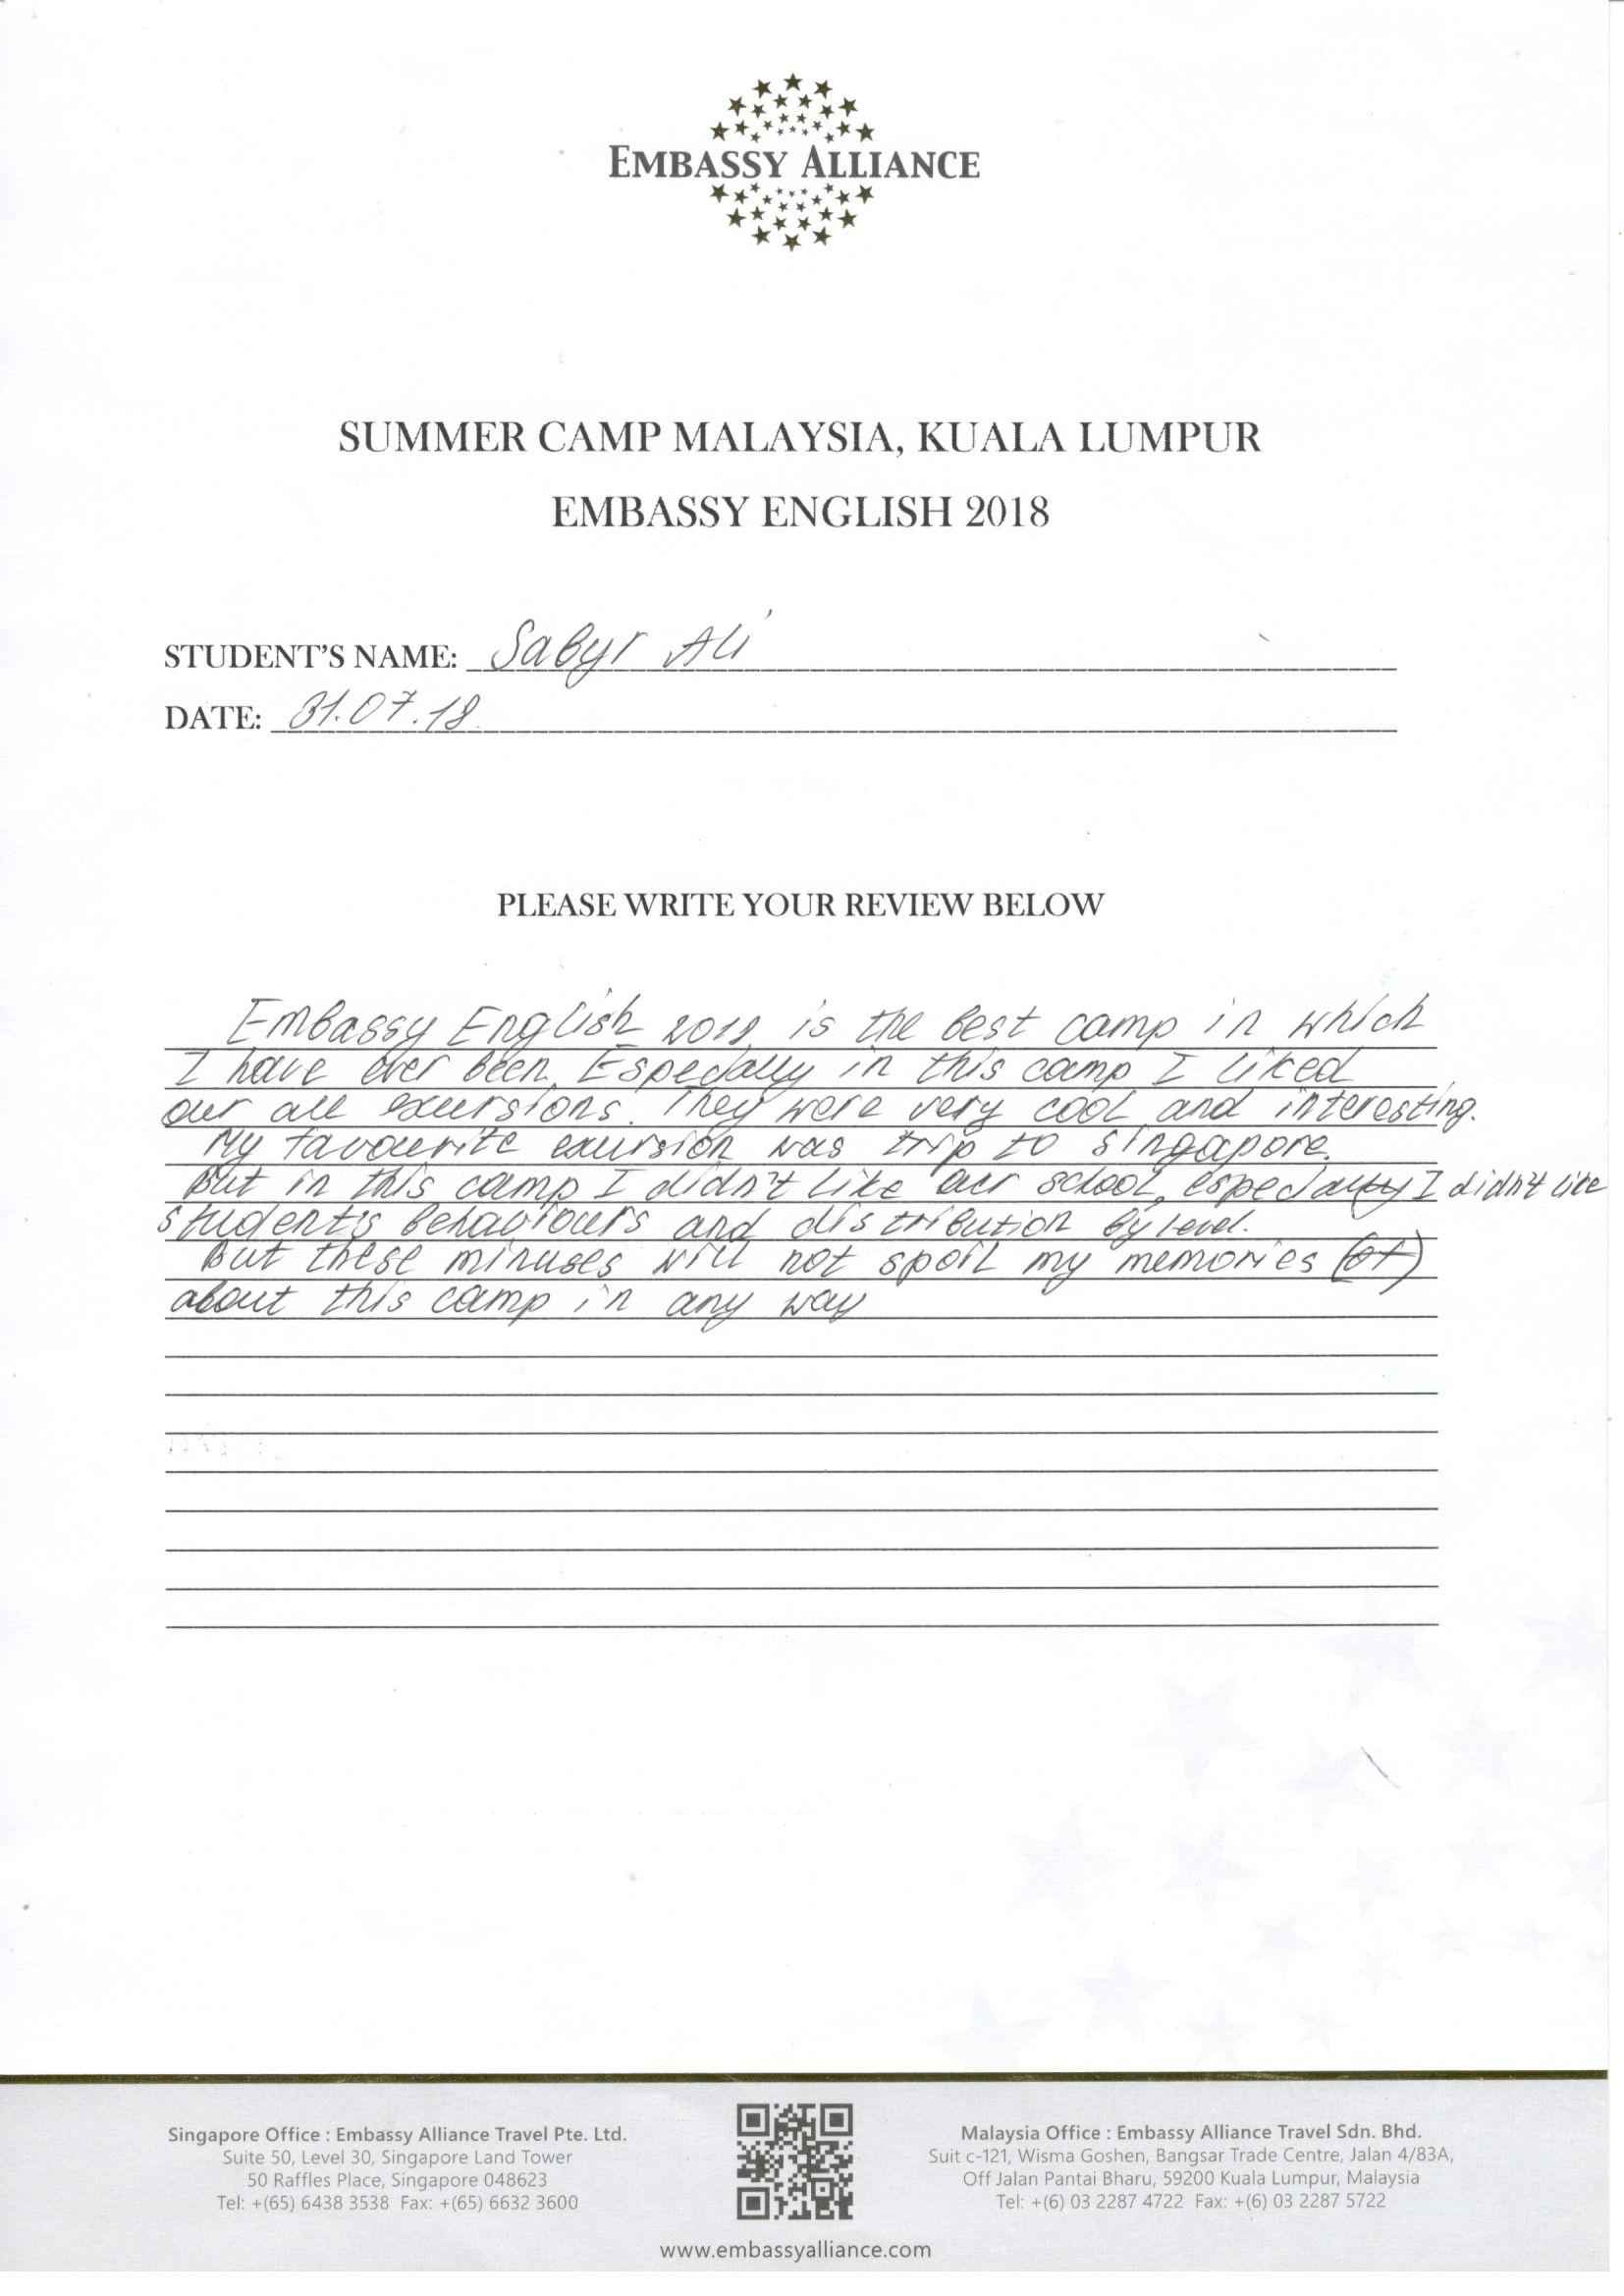 EMBASSY ALLIANCE
SUMMER CAMP MALAYSIA, KUALA LUMPUR
EMBASSY ENGLISH 2018
STUDENT'S NAME: Sabyr Ali
DATE: 31.07.18
PLEASE WRITE YOUR REVIEW BELOW
Embassy English 2018 is the best camp in which
I have ever been. Especially in this camp I liked
our all excursions. They were very cool and interesting.
My favourite excursion was trip to Singapore.
But in this camp I didn't like our school, especially I didn't like
student's behaviours and distribution by level.
But these minuses will not spoil my memories (of)
about this camp in any way
Singapore Office : Embassy Alliance Travel Pte. Ltd.
Suite 50, Level 30, Singapore Land Tower
50 Raffles Place, Singapore 048623
Tel: +(65) 6438 3538 Fax: +(65) 6632 3600
Malaysia Office : Embassy Alliance Travel Sdn. Bhd.
Suit c-121, Wisma Goshen, Bangsar Trade Centre, Jalan 4/83A,
Off Jalan Pantai Bharu, 59200 Kuala Lumpur, Malaysia
Tel: +(6) 03 2287 4722 Fax: +(6) 03 2287 5722
www.embassyalliance.com